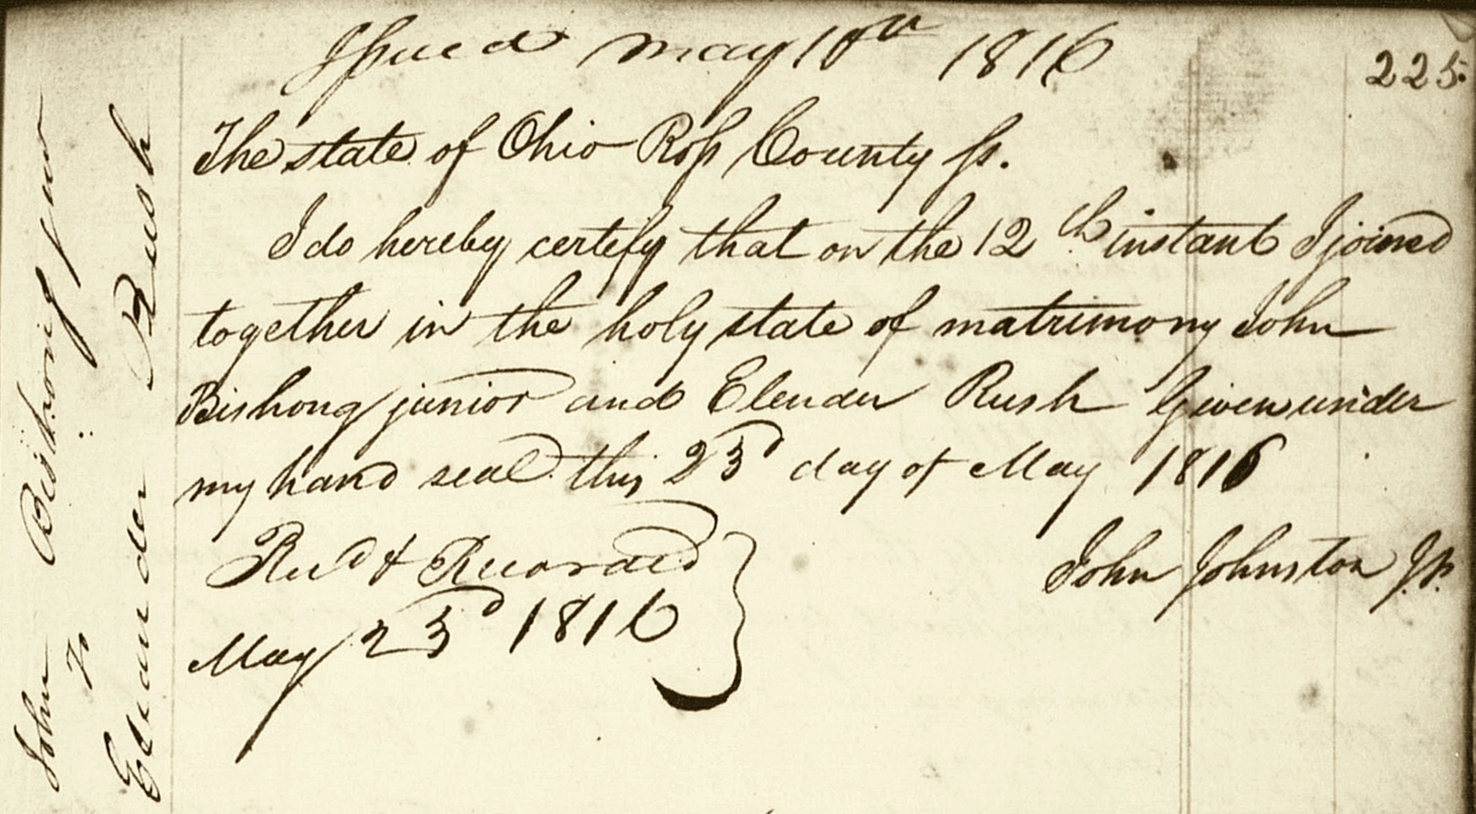 Issued may 10th 1816
225.
The state of Ohio Ross County ss.
I do hereby certefy that on the 12th instant I joined
together in the holy state of matrimony John
Bishong junior and Elender Rush Given under
my hand seal this 23d day of May 1816
John Johnston J.P.
Recd & Recorded
May 23d 1816
John Bishong Jun
To
Eleander Rush